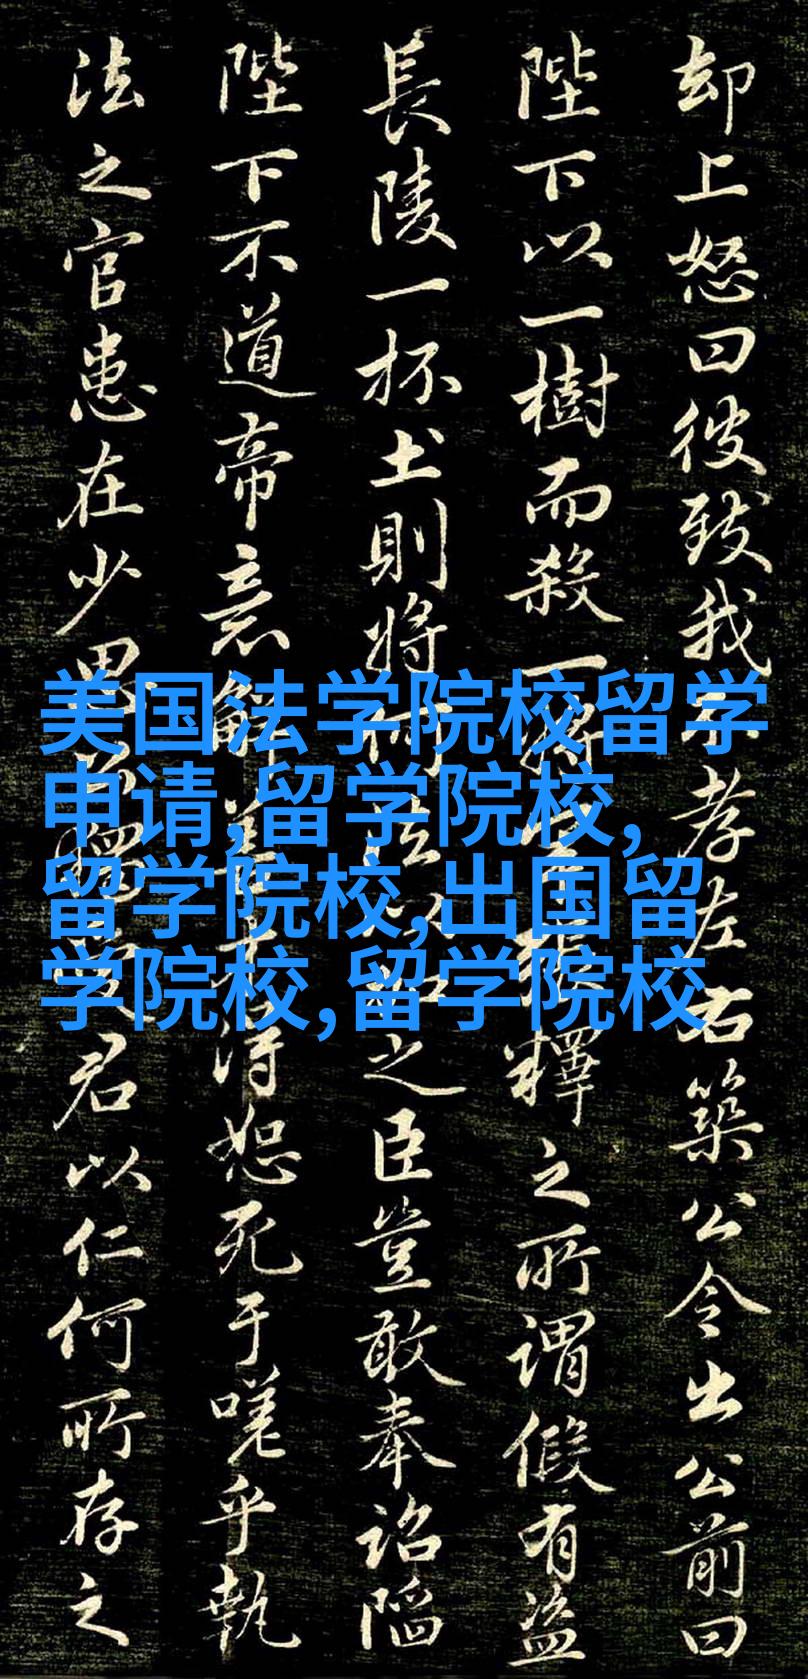 却上怒曰彼致我孝左右築公令出公前曰
陛下以一樹而殺一釋之所謂假有盜
長陵一抔土則將何法之臣豈敢奉詔陷
陛下不道帝意解得恕死于嗟乎執
法之官患在少君以仁何所存之
美国法学院校留学
申请,留学院校,
留学院校,出国留
学院校,留学院校